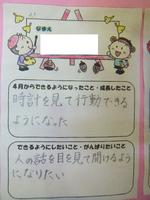 なまえ
4月からできるようになったこと・成長したこと
時計を見て行動できる
ようになった
できるようにしたいこと・がんばりたいこと
人の話を目を見て聞けるよう
になりたい